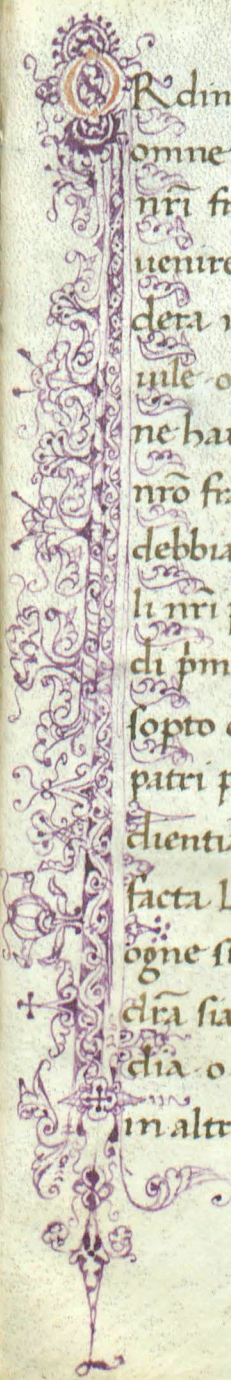 ORdin
omne
nr̄i fr
uenire
deta
uile o
ne hau
nr̄o fra
debbia
li nr̄i p
di p̄m
sopto
patri p
dienti
facta l
ogne si
dr̄a sia
dia o
in altr